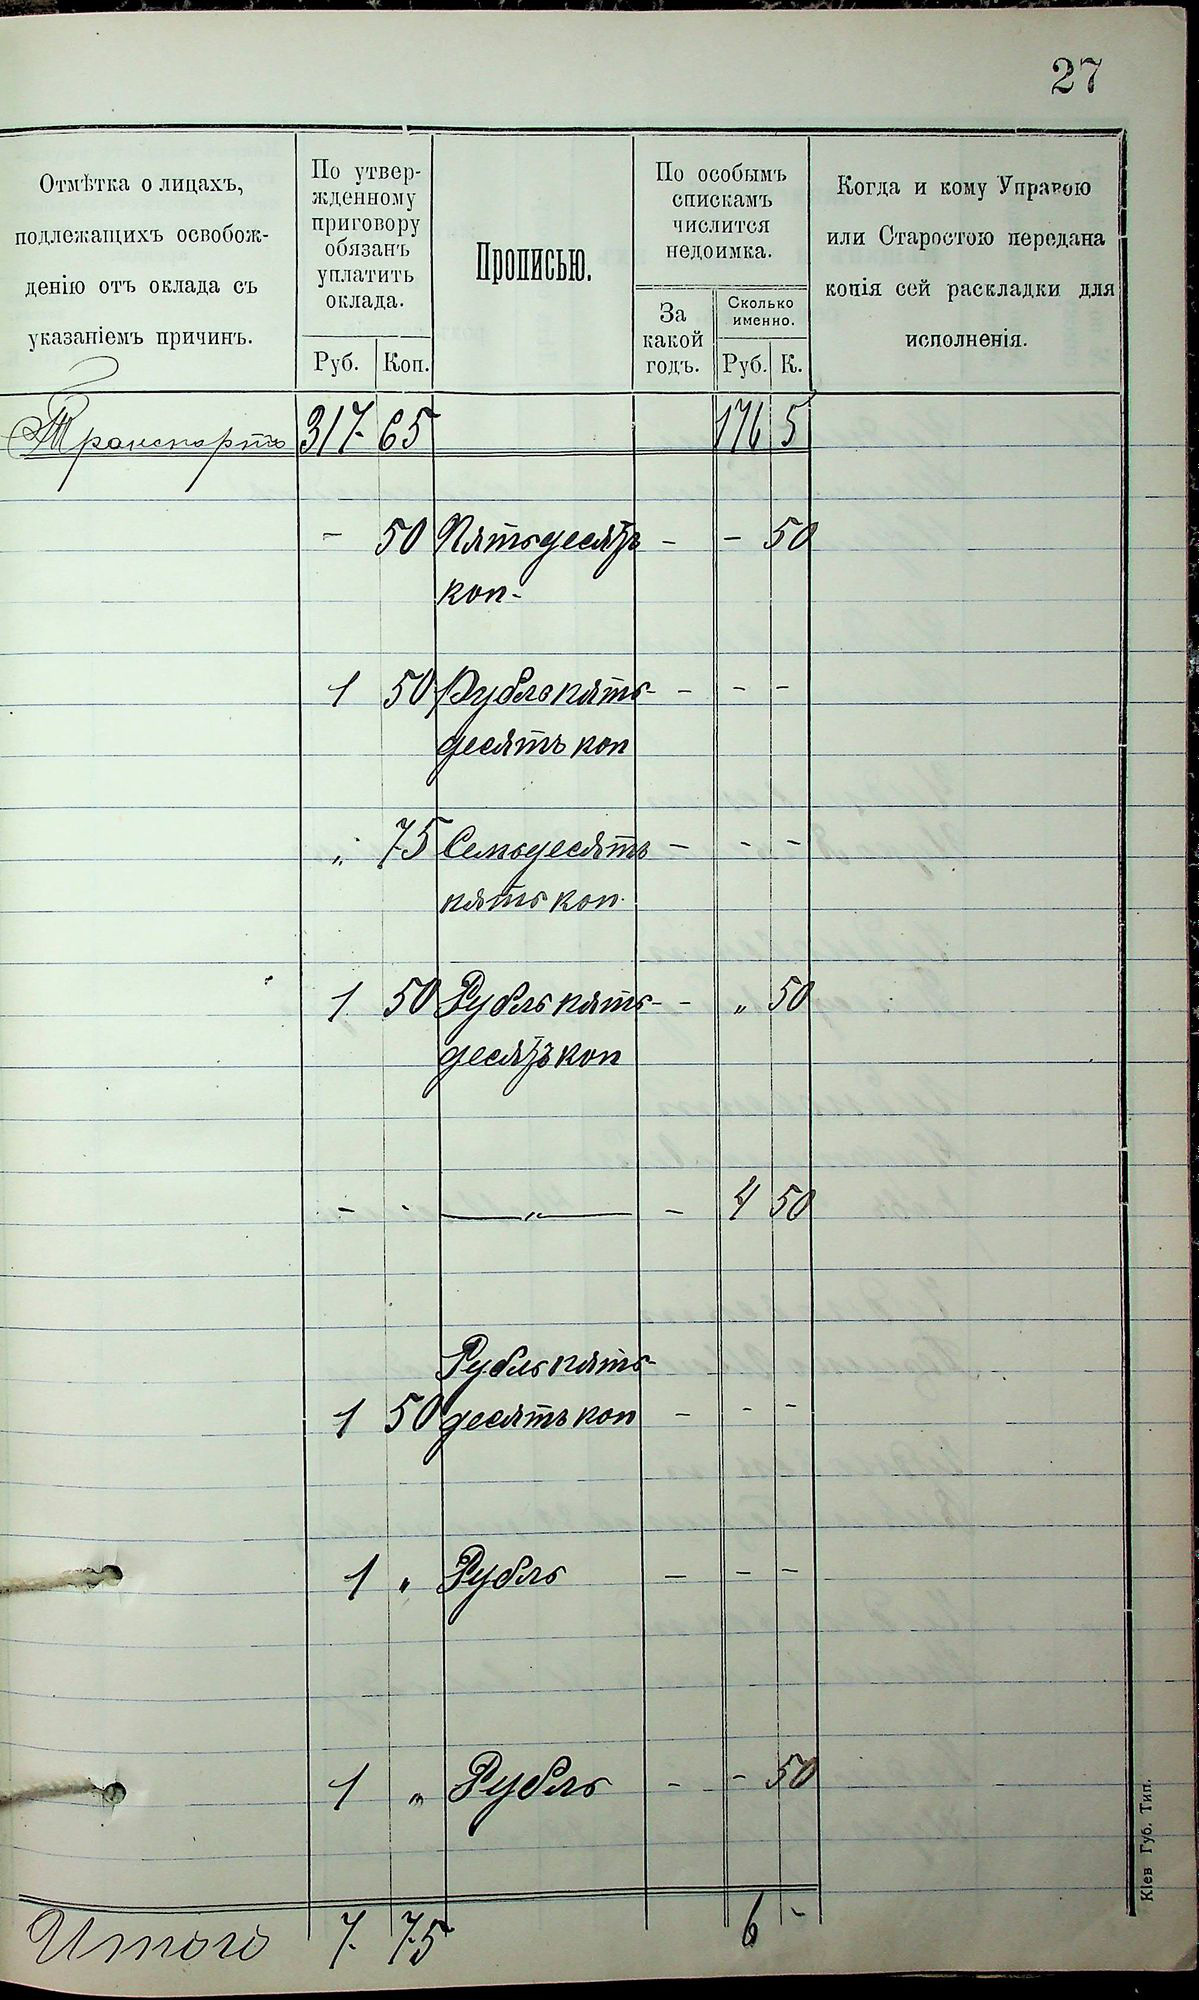 27
Отмѣтка о лицахъ,
подлежащихъ освобож-
денію отъ оклада съ
указаніемъ причинъ.
По утвер-
жденному
приговору
обязанъ
уплатить
оклада.
Руб. Коп.
Прописью.
По особымъ
спискамъ
числится
недоимка.
За
какой
годъ.
Сколько
именно.
Руб. К.
Когда и кому Управою
или Старостою передана
копія сей раскладки для
исполненія.
Транспортъ 317 65 176 5
- 50 Пятьдесятъ - - 50
коп-
1 50 Рубль пять- - - -
десятъ коп
„ 75 Семьдесятъ - - -
пять коп.
1 50 Рубль пять- - „ 50
десятъ коп
- - —„— - 4 50
Рубль пять-
1 50 десятъ коп - - -
1 „ Рубль - - -
1 „ Рубль - - 50
Итого 7 75 6 -
Кіев Губ. Тип.